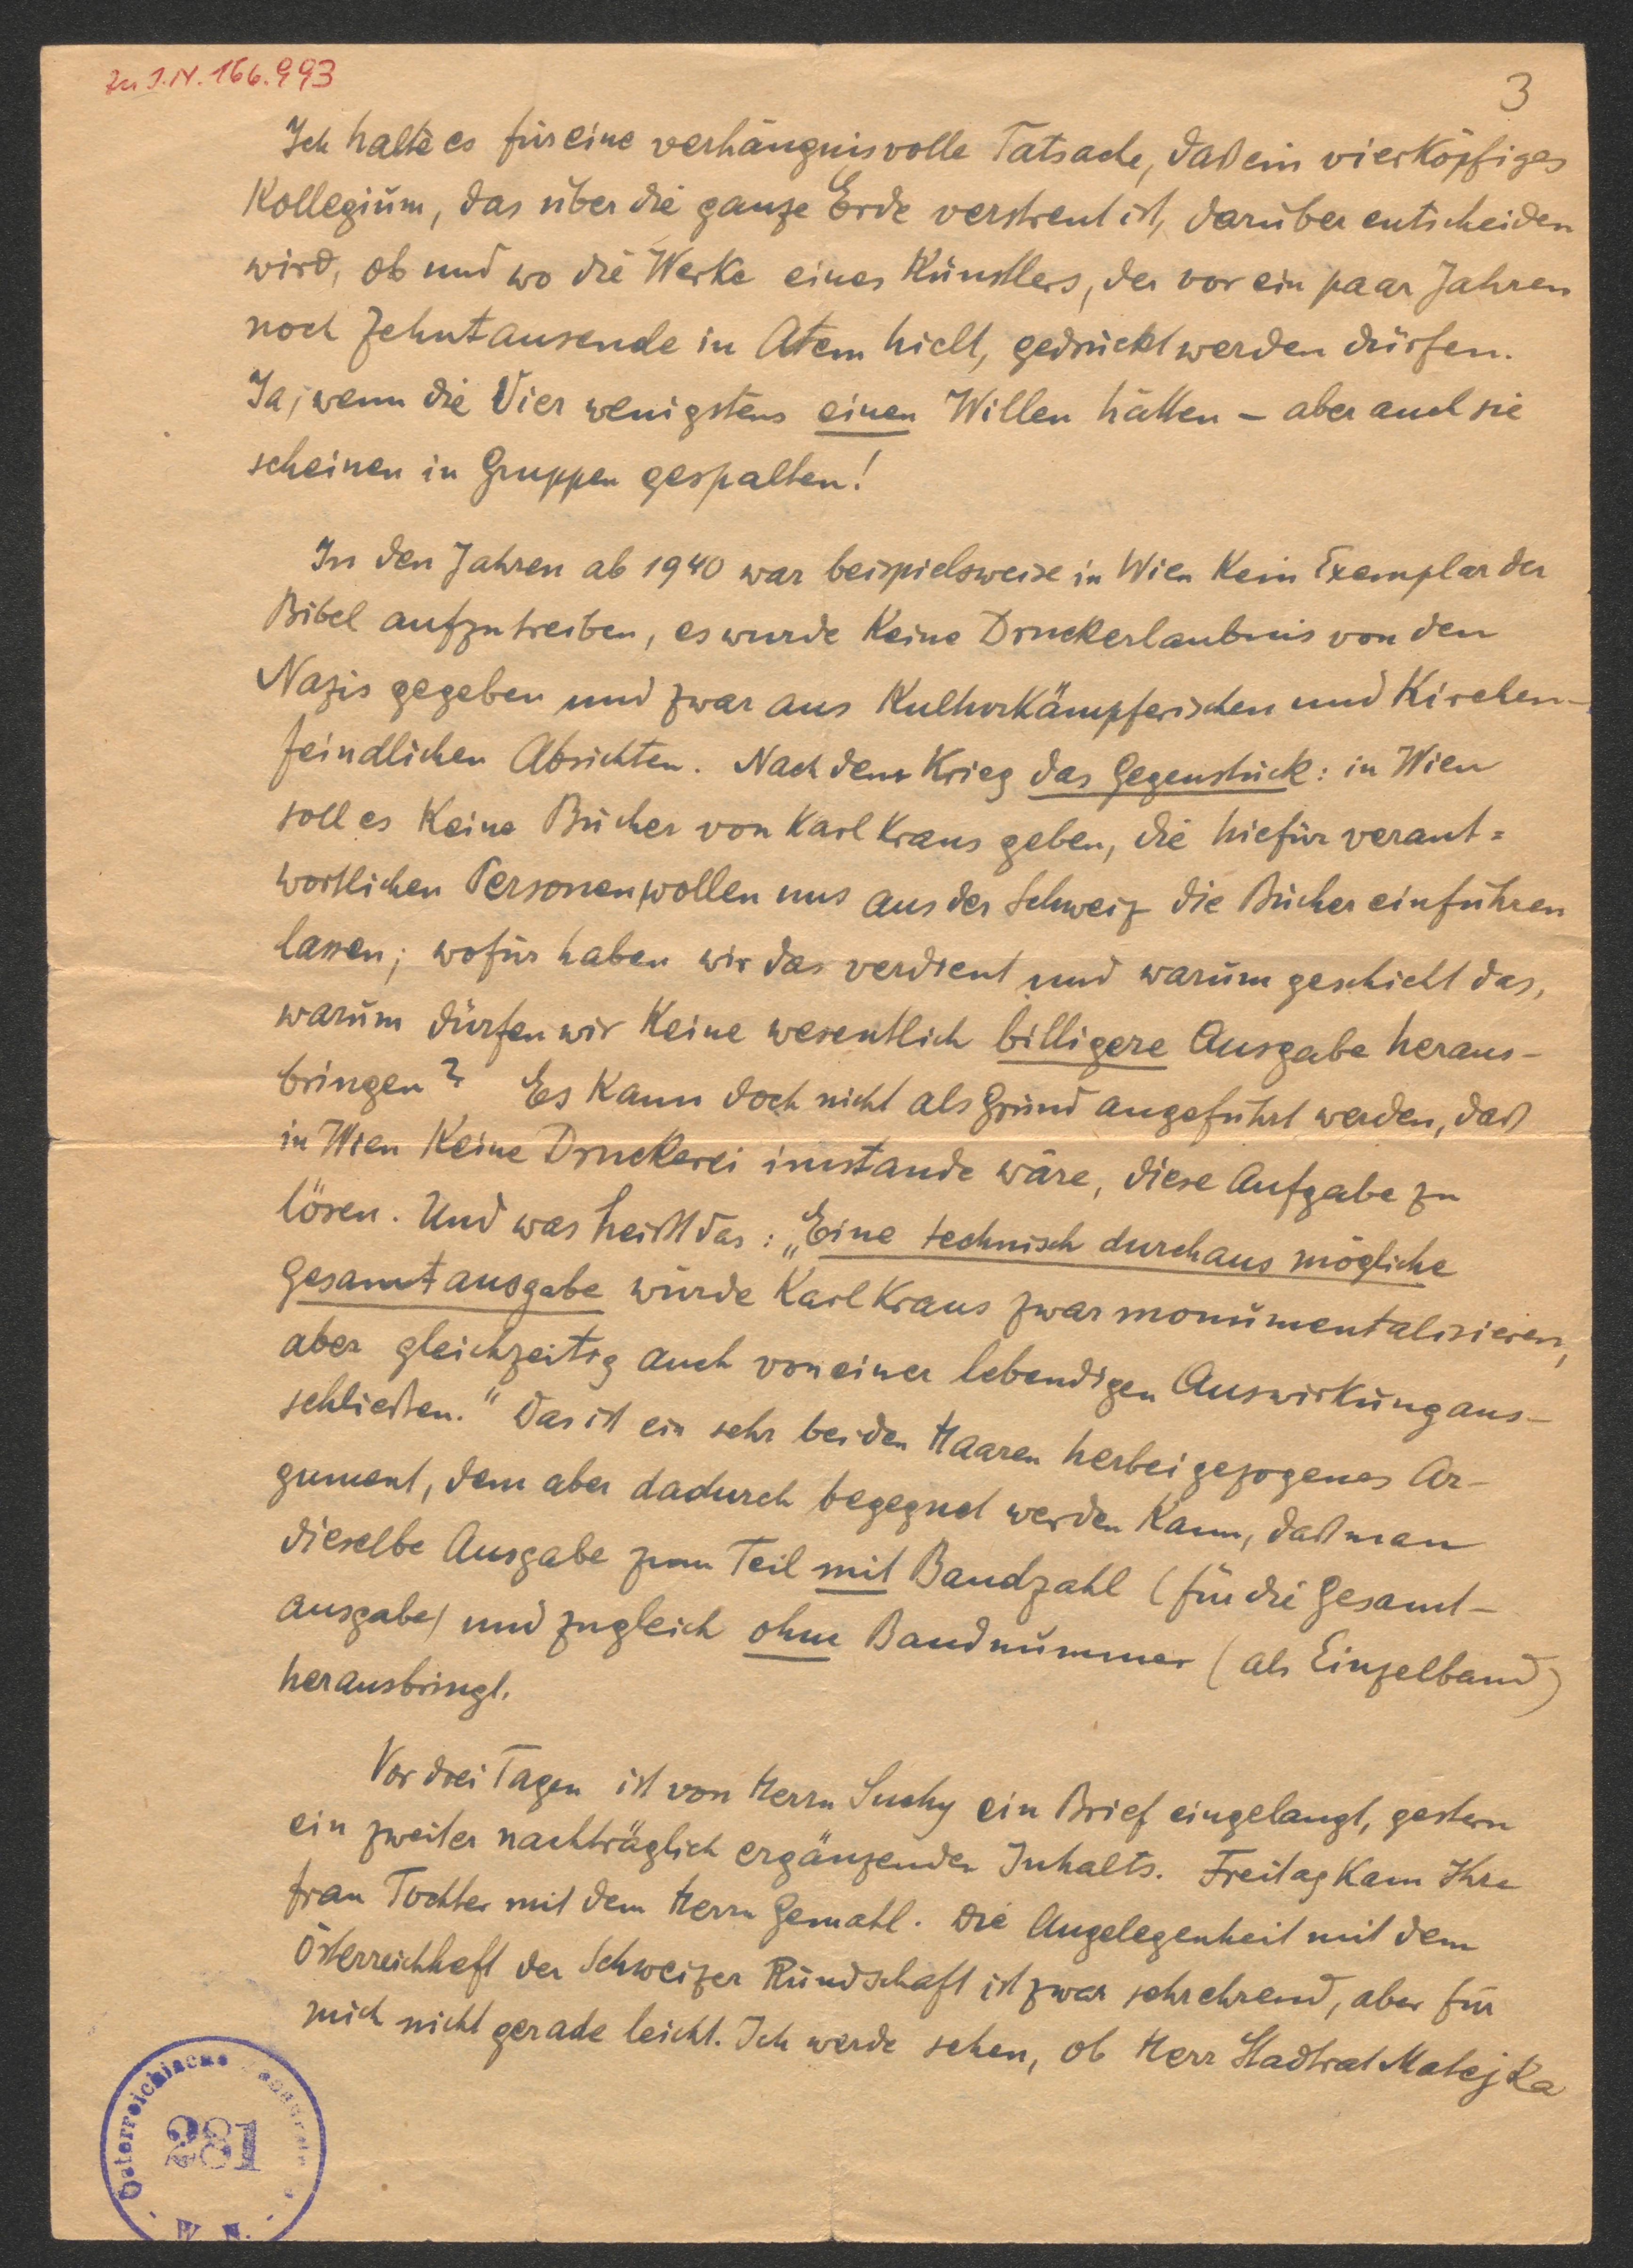 Zu I.N. 166.993
3
Ich halte es für eine verhängnisvolle Tatsache, daß ein vierköpfiges
Kollegium, das über die ganze Erde verstreut ist, darüber entscheiden
wird, ob und wo die Werke eines Künstlers, der vor ein paar Jahren
noch Zehntausende in Atem hielt, gedruckt werden dürfen.
Ja, wenn die Vier wenigstens einen Willen hätten – aber auch sie
scheinen in Gruppen gespalten!
In den Jahren ab 1940 war beispielsweise in Wien kein Exemplar der
Bibel aufzutreiben, es wurde keine Druckerlaubnis von den
Nazis gegeben und zwar aus kulturkämpferischen und kirchen-
feindlichen Absichten. Nach dem Krieg das Gegenstück: in Wien
soll es keine Bücher von Karl Kraus geben, die hiefür verant=
wortlichen Personen wollen uns aus der Schweiz die Bücher einführen
lassen; wofür haben wir das verdient und warum geschieht das,
warum dürfen wir keine wesentlich billigere Ausgabe heraus-
bringen? Es kann doch nicht als Grund angeführt werden, daß
in Wien keine Druckerei imstande wäre, diese Aufgabe zu
lösen. Und was heißt das: „Eine technisch durchaus mögliche
Gesamtausgabe würde Karl Kraus zwar monumentalisieren,
aber gleichzeitig auch von einer lebendigen Auswirkung aus-
schließen.“ Das ist ein sehr bei den Haaren herbeigezogenes Ar-
gument, dem aber dadurch begegnet werden kann, daß man
dieselbe Ausgabe zum Teil mit Bandzahl (für die Gesamt-
ausgabe) und zugleich ohne Bandnummer (als Einzelband)
herausbringt.
Vor drei Tagen ist von Herrn Suchy ein Brief eingelangt, gestern
ein zweiter nachträglich ergänzenden Inhalts. Freitag kam Ihre
Frau Tochter mit dem Herrn Gemahl. Die Angelegenheit mit dem
Österreichheft der Schweizer Rundschaft ist zwar sehr ehrend, aber für
mich nicht gerade leicht. Ich werde sehen, ob Herr Stadtrat Matejka
Österreichische
281
W. N.